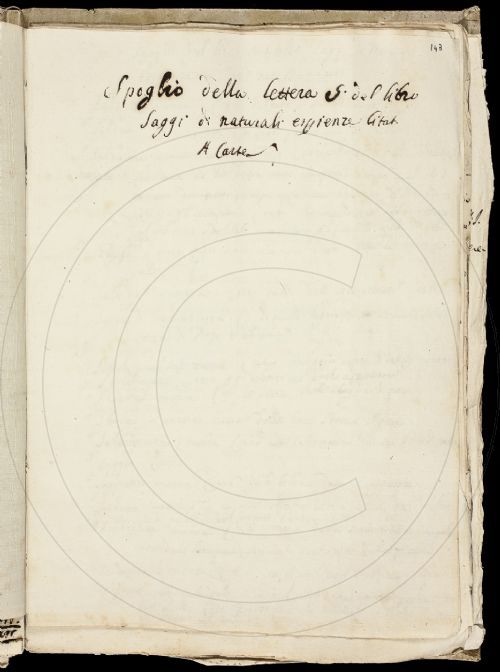 143
Spoglio della lettera S. del libro
Saggi di naturali esperienze Citat
A Carte